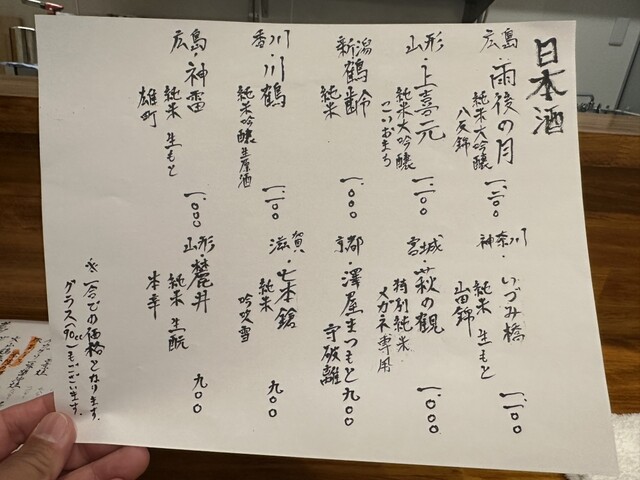 日本酒
広島・雨後の月
純米大吟醸
八反錦
一、二〇〇
神奈川・いづみ橋
純米 生もと
山田錦
一、一〇〇
山形・上喜元
純米大吟醸
こいおまち
一、一〇〇
宮城・萩の観
特別純米
メガネ専用
一、〇〇〇
新潟・鶴齢
純米
一、〇〇〇
京都・澤屋まつもと
守破離
九〇〇
香川・川鶴
純米大吟醸生原酒
一、一〇〇
滋賀・七本鎗
純米
吟吹雪
九〇〇
広島・神雷
純米 生もと
雄町
一、〇〇〇
山形・麓井
純米 生酛
本辛
九〇〇
※一合での価格となります。
グラス(90cc)もございます。